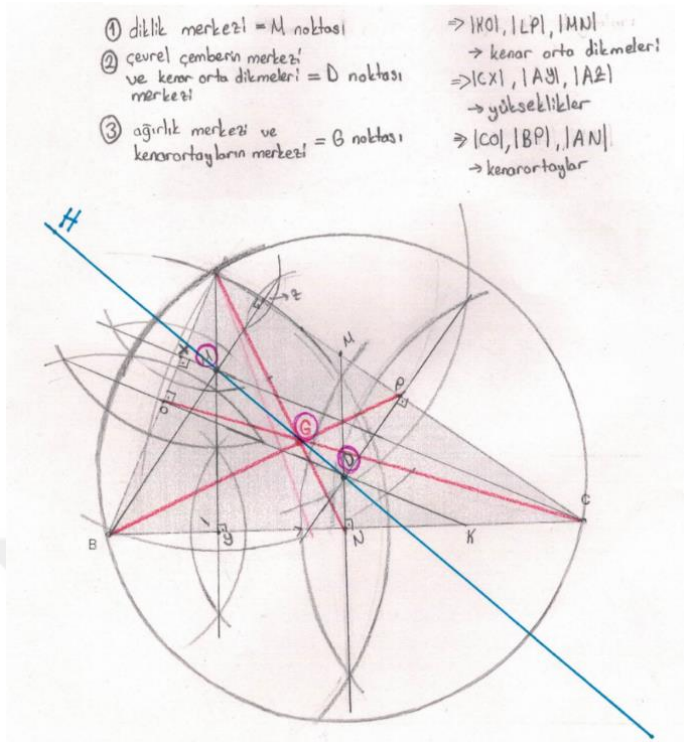 ① diklik merkezi = M noktası
② çevrel çemberin merkezi
ve kenar orta dikmeleri = D noktası
merkezi
③ ağırlık merkezi ve
kenarortayların merkezi = G noktası
⇒ |KO|, |LP|, |MN|
→ kenar orta dikmeleri
⇒ |CX|, |AY|, |AZ|
→ yükseklikler
⇒ |CO|, |BP|, |AN|
→ kenarortaylar
H
→ Z
M
X
P
O
G
D
C
B
Y
N
K